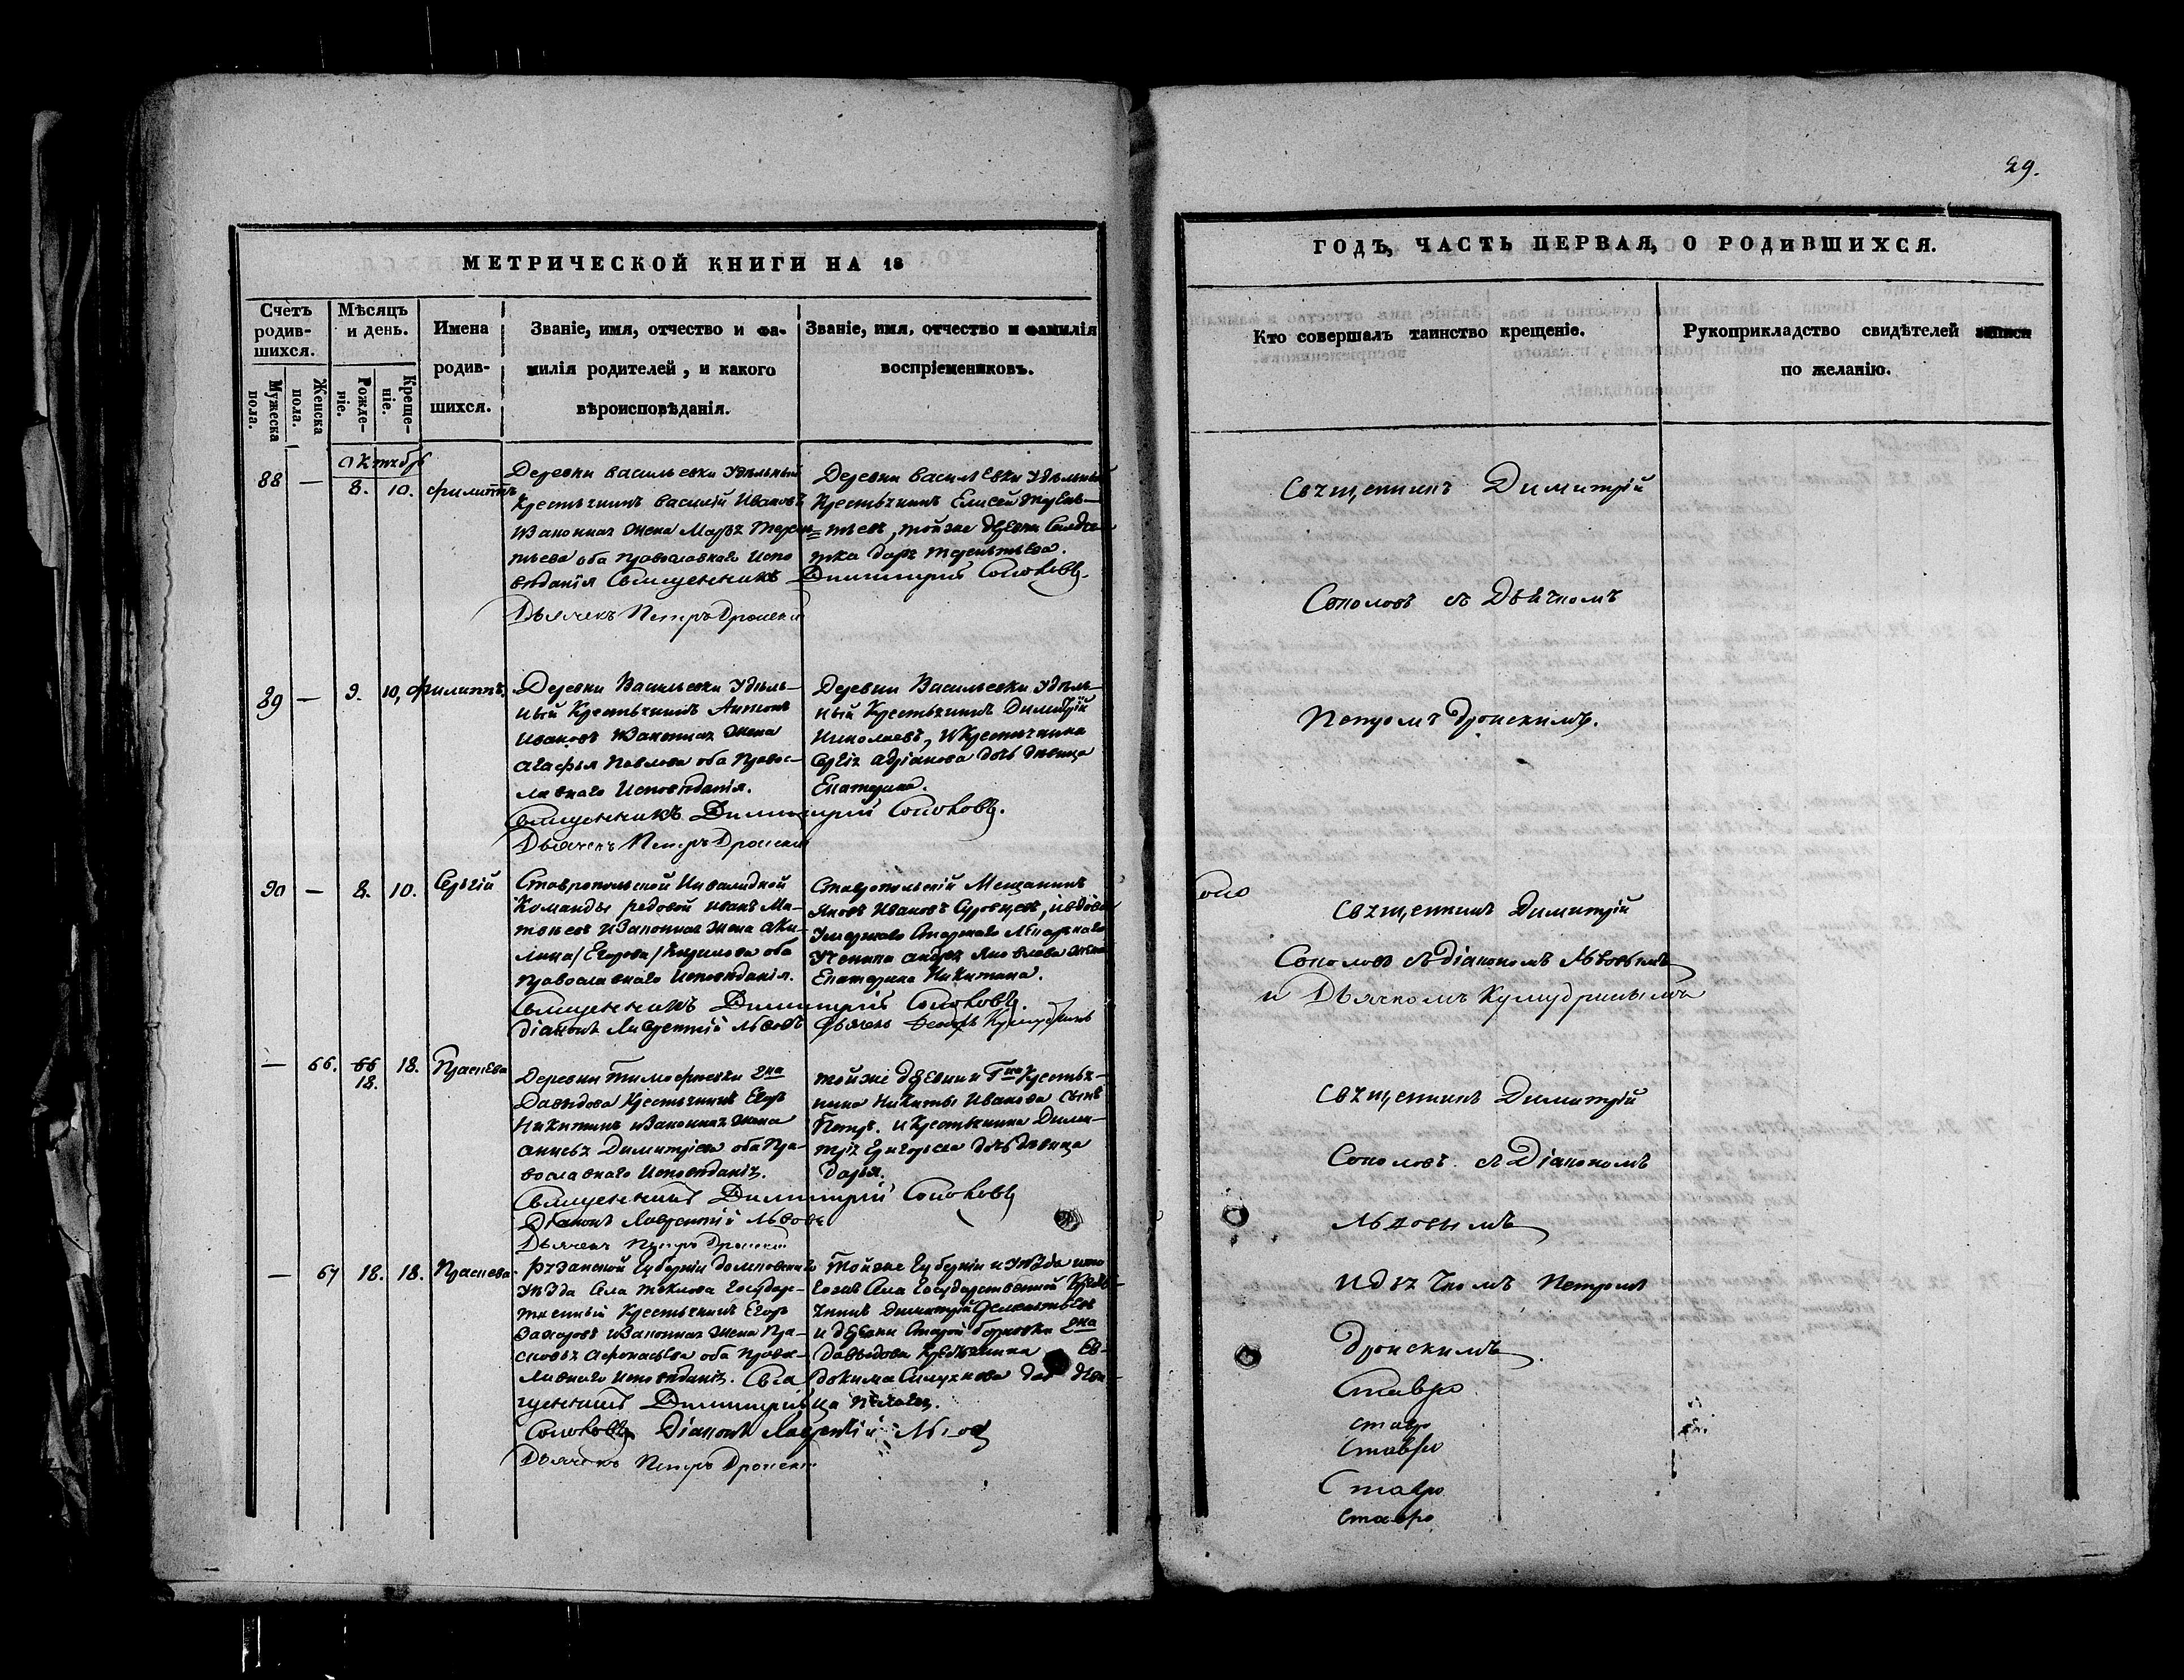 29.
МЕТРИЧЕСКОЙ КНИГИ НА 18
Счетъ родившихся.
Мужеска пола.
Женска пола.
Мѣсяцъ и день.
Рожденіе.
Крещеніе.
Имена
родив-
шихся.
Званіе, имя, отчество и фа-
милія родителей, и какого
вѣроисповѣданія.
Званіе, имя, отчество и фамилія
воспріемниковъ.
Октябр
88 — 8. 10. Филиппъ
Деревни Васильевки Удѣльный
Крестьянинъ Василій Ивановъ
Изаконная жена Марѳа Терен
тьева оба Православнаго Испо
вѣданія Священникъ Димитрій Соколовъ.
Дьячекъ Петръ Дронскій
Деревни Васильевки Удѣльный
Крестьянинъ Елисей Терен-
=тьевъ, тойже деревни Солда
тка Дарья Терентьева.
89 — 9. 10. Филиппъ
Деревни Васильевки Удѣль-
ный Крестьянинъ Антонъ
Ивановъ Изаконная жена
Агафья Павлова оба Правос-
лавнаго Исповѣданія.
Священникъ Димитрій Соколовъ.
Дьячекъ Петръ Дронскій
Деревни Васильевки Удѣль-
ный Крестьянинъ Димитрій
Николаевъ, Икрестьянина
Сергія Адріанова дочь дѣвица
Екатерина.
90 — 8. 10. Сергій
Ставропольской Инвалидной
Команды редовой Иванъ Ма-
твѣевъ Изаконная жена Аки-
лина /Егорова/ оба
Православнаго Исповѣданія.
Священникъ Димитрій Соколовъ.
Діаконъ Лаврентій Львовъ Дьячекъ
Ставропольскій Мещанинъ
Яковъ Ивановъ, ивдова
Умершаго
Ученика Андрея Яковлева жена
Екатерина Никитина.
— 66. 66 18. 18. Праскева
Деревни Тимофѣевки Гна
Давыдова Крестьянинъ Егоръ
Никитинъ Изаконная жена
Анисья Димитріева оба Пра-
вославнаго Исповѣданія.
Священникъ Димитрій Соколовъ
Діаконъ Лаврентій Львовъ
Дьячекъ Петръ Дронскій
тойже деревни Гна Крестья-
нина Никиты Иванова сынъ
Петръ. и Крестьянина Дими-
трія Григорьева дочь дѣвица
Дарья.
— 67 18. 18. Праскева.
Рязанской Губерніи
Уѣзда Села Государс-
твенный Крестьянинъ Егоръ
Захаровъ Изаконная жена Пра-
сковья Афонасьева оба Правос-
лавнаго Исповѣданія. Свя
щенникъ Димитрій
Соколовъ Діаконъ Лаврентій Львовъ
Дьячекъ Петръ Дронскій
Тойже Губерніи и Уѣзда итого
Села Государственной Крестья-
нинъ Димитрій
и деревни Старой Гна
Давыдова Крестьянина Ев-
докима дѣви-
ца Пелагея.
ГОДЪ, ЧАСТЬ ПЕРВАЯ, О РОДИВШИХСЯ.
Кто совершалъ таинство крещеніе.
Рукоприкладство свидѣтелей записи
по желанію.
Священникъ Димитрій
Соколовъ съ Дьячкомъ
Петромъ Дронскимъ.
Соко
Священникъ Димитрій
Соколовъ съ Діакономъ Львовымъ
и Дьячкомъ Кумудринымъ
Священникъ Димитрій
Соколовъ съ Діакономъ
Львовымъ
И дьячкомъ Петромъ
Дронскимъ.
Ставро
ставро
Ставро
Ставро
Ставро